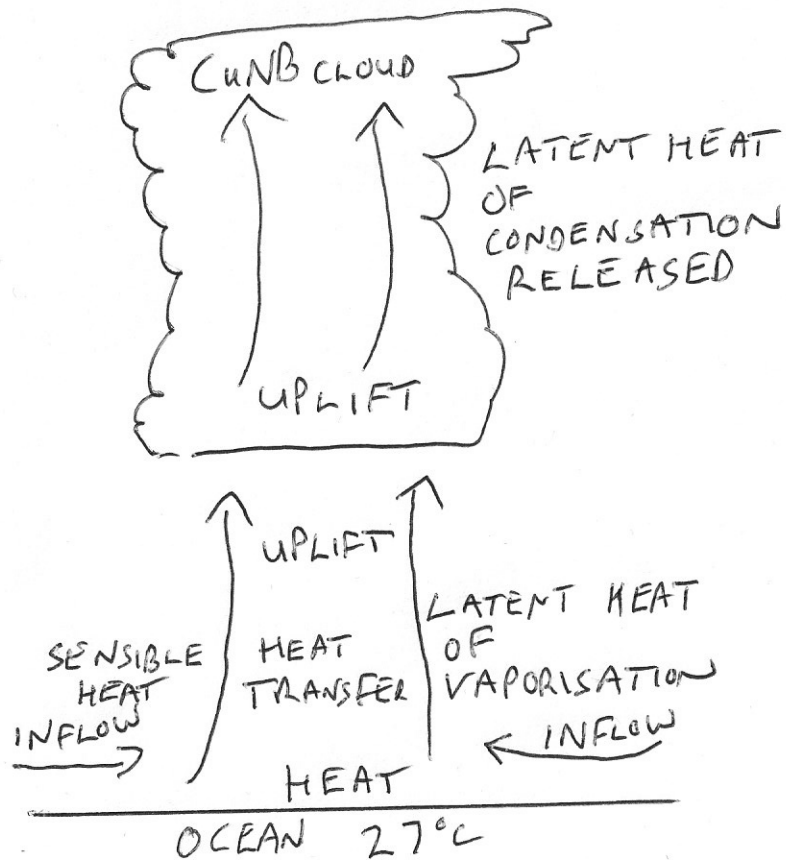 CUNB CLOUD
LATENT HEAT
OF
CONDENSATION
RELEASED
UPLIFT
UPLIFT
SENSIBLE
HEAT
INFLOW
HEAT
TRANSFER
LATENT HEAT
OF
VAPORISATION
INFLOW
HEAT
OCEAN 27°C